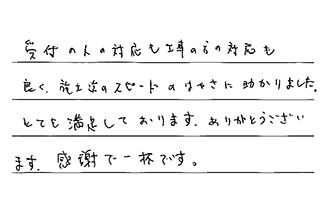 受付の人の対応も工事の方の対応も
良く、施工迄のスピードのはやさに助かりました。
とても満足しております。ありがとうござい
ます。感謝で一杯です。